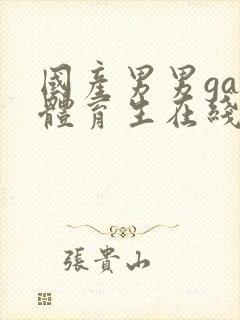 國產男男ga
體育生在綫
張貴山